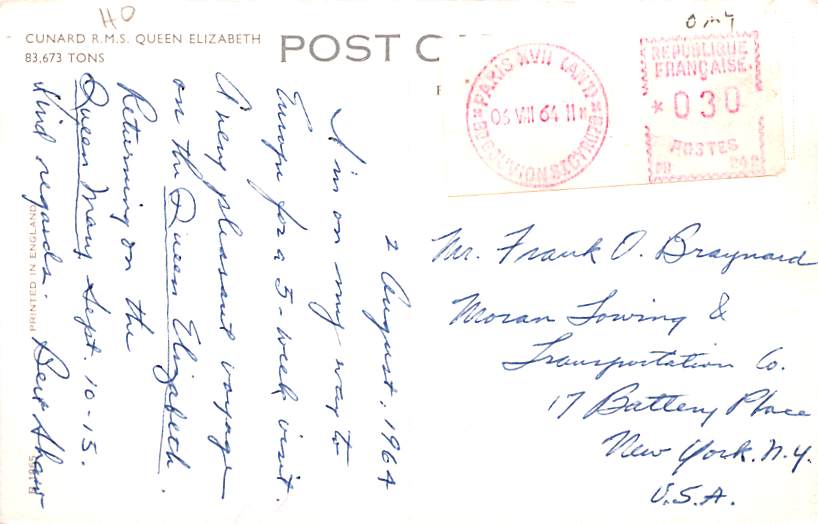 HO
CUNARD R.M.S. QUEEN ELIZABETH
83,673 TONS
POST C
PARIS XVII (ANN)
05 VIII 64 11H
Bd GOUVION St CYR
REPUBLIQUE
FRANÇAISE
* 030
POSTES
2 August, 1964
I'm on my way to
Europe for a 5-week visit.
A very pleasant voyage
on the Queen Elizabeth.
Returning on the
Queen Mary, Sept. 10-15.
Kind regards. Bert Shaw
PRINTED IN ENGLAND
Mr. Frank O. Braynard
Moran Towing &
Transportation Co.
17 Battery Place
New York, N.Y.
U.S.A.